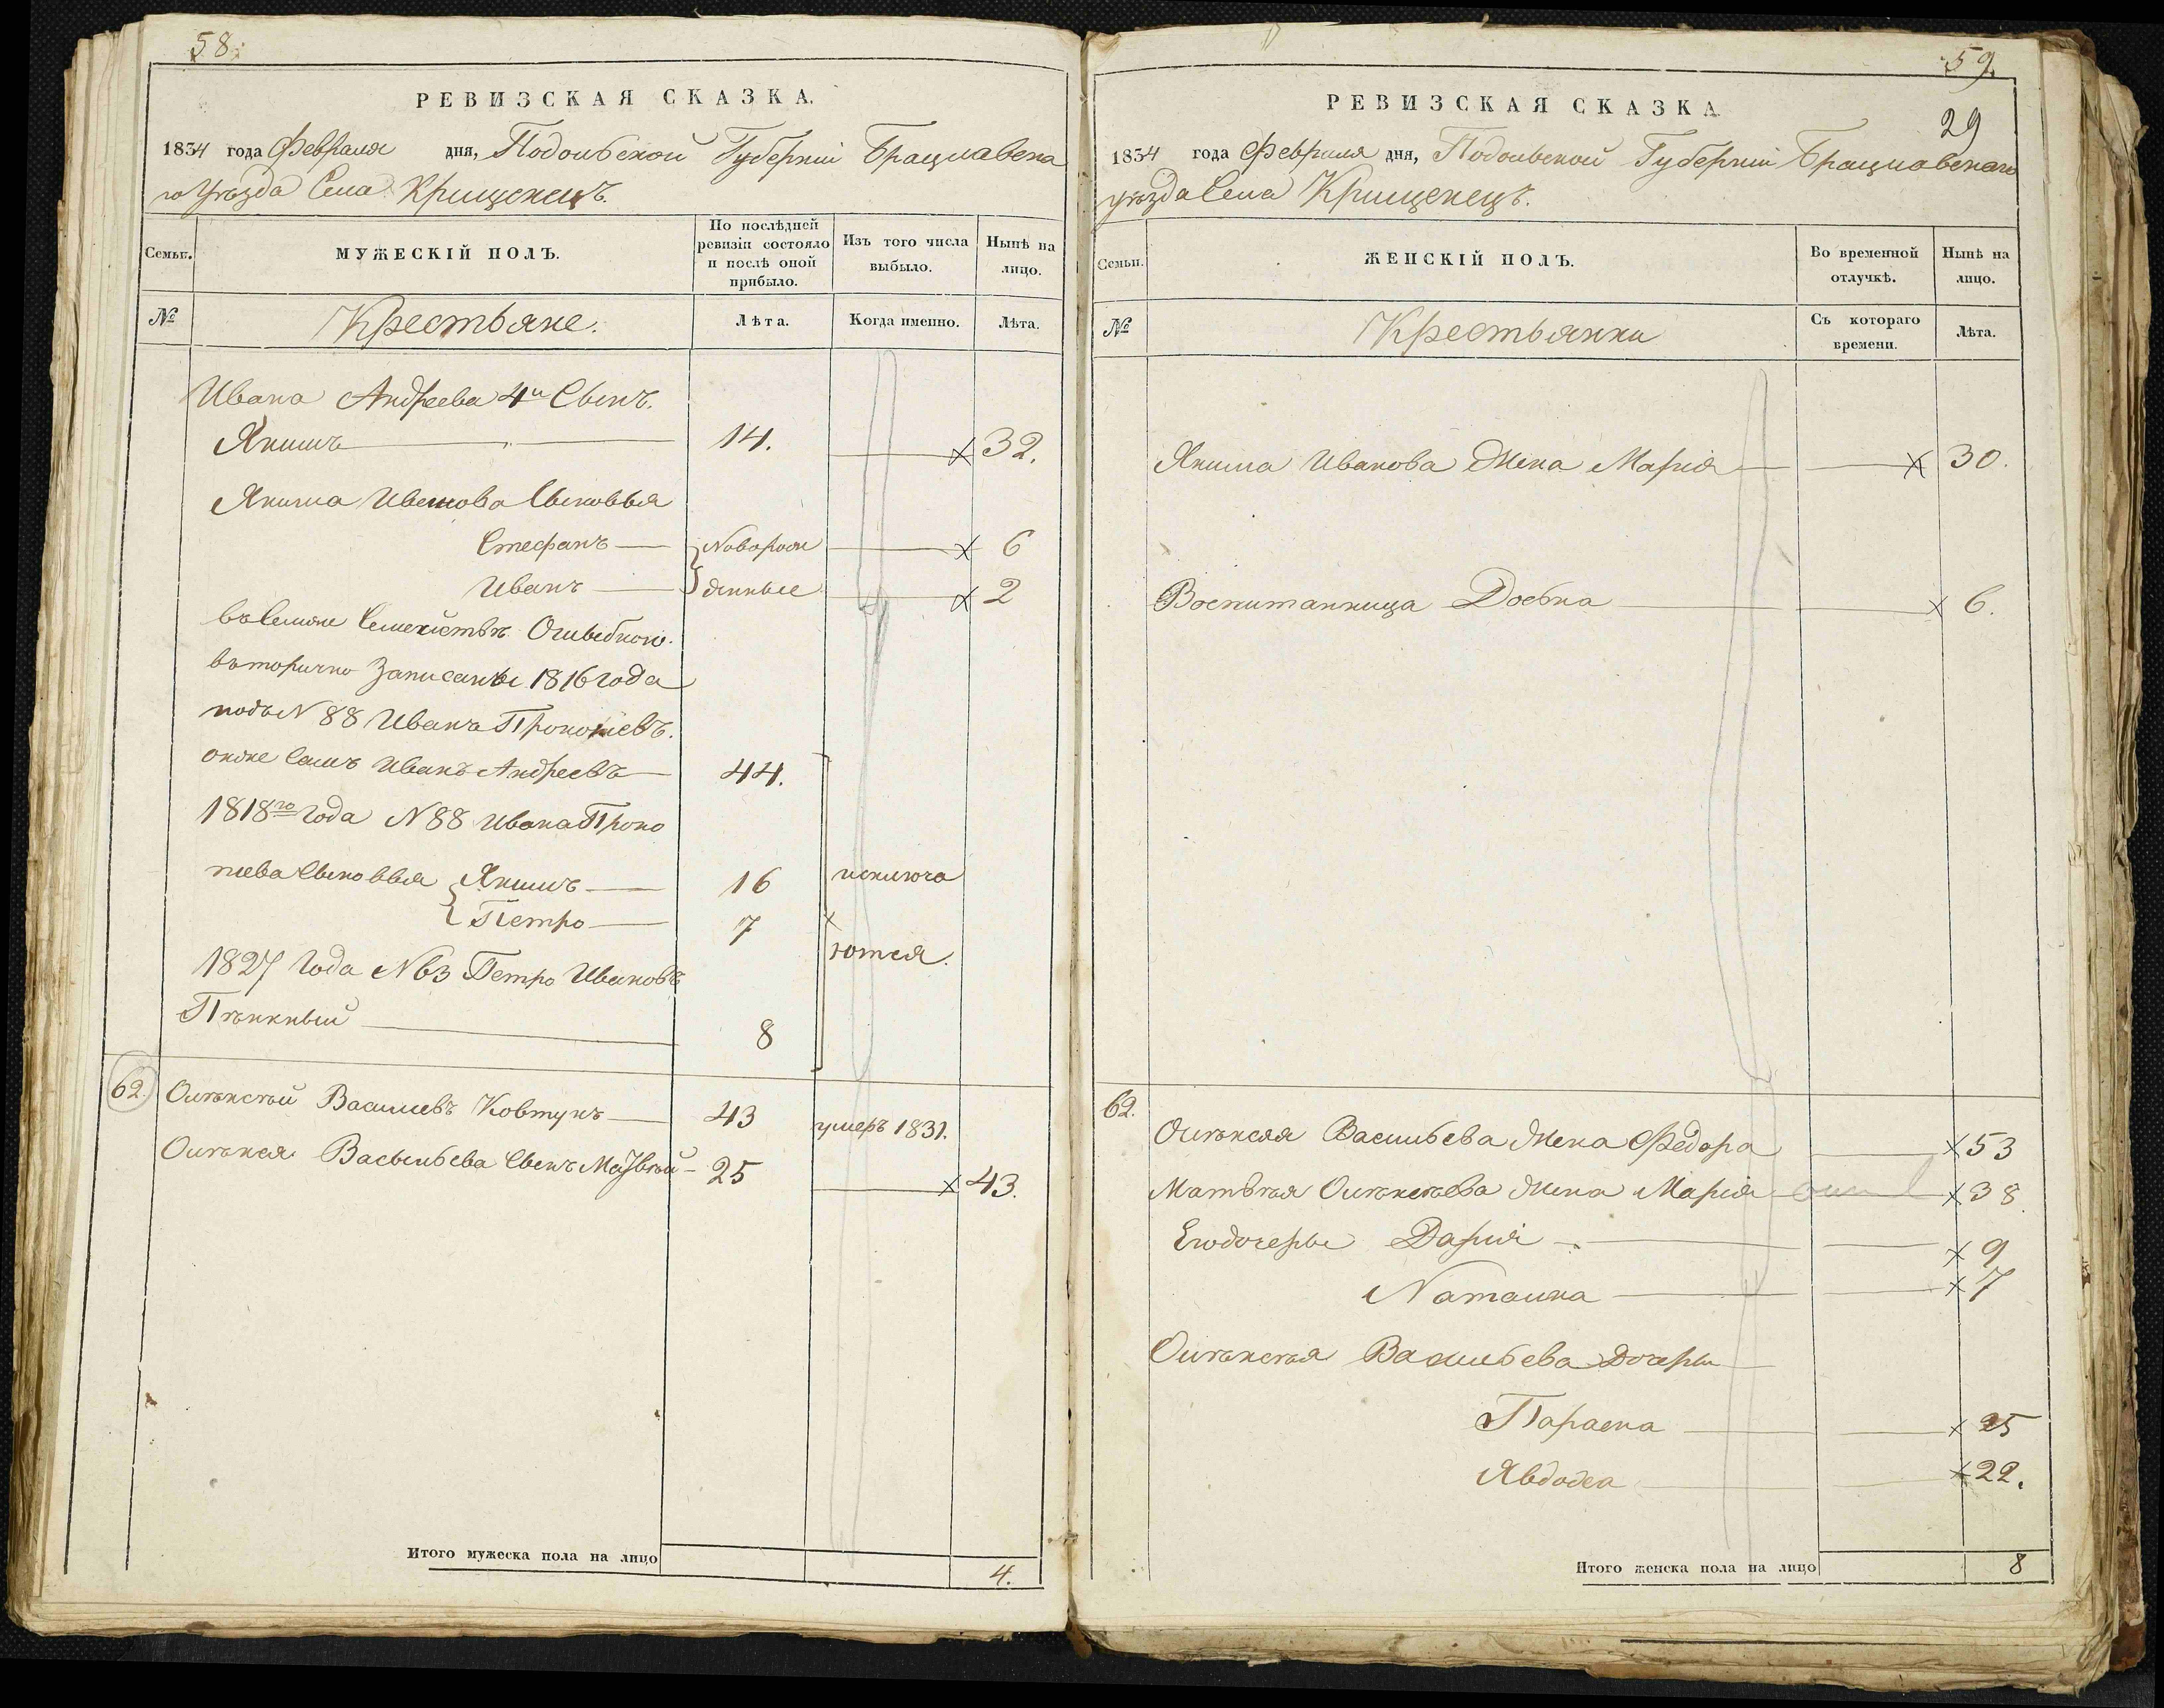 58.
РЕВИЗСКАЯ СКАЗКА.
1834 года Февраля дня, Подольской Губерніи Брацлавска
го Уѣзда Села Крищенецъ.
Семьи.
МУЖЕСКІЙ ПОЛЪ.
По послѣдней ревизіи состояло и послѣ оной прибыло.
Изъ того числа выбыло.
Нынѣ на лицо.
№
Крестьяне.
Лѣта.
Когда именно.
Лѣта.
Ивана Андреева 4й Сынъ.
Якимъ 14. 32.
Якима Иванова Сыновья
Стефанъ Новорож 6
Иванъ денные 2
въ Семъ же Семействѣ Ошибкою
вторично Записаны 1816 года
подъ N 88 Иванъ Прокопіевъ.
онже Самъ Иванъ Андреевъ 44.
1818го года N 88 Ивана Проко
піева Сыновья Якимъ 16 исключа
Петро 7
ются.
1827 Года N 63 Петро Ивановъ
8
62. Олѣксѣй Васильевъ Ковтунъ 43 умеръ 1831.
Олѣксея Васильева Сынъ Матвѣй 25 43.
Итого мужеска пола на лицо 4.
59.
29
РЕВИЗСКАЯ СКАЗКА
1834 года Февраля дня, Подольской Губерніи Брацлавскаго
уѣзда Села Крищенецъ.
Семьи.
ЖЕНСКІЙ ПОЛЪ.
Во временной отлучкѣ.
Нынѣ на лицо.
№
Крестьянки
Съ котораго времени.
Лѣта.
Якима Иванова Жена Марія 30.
Воспитанница Доська 6.
62.
Олѣксея Васильева Жена Федора 53
Матвѣя Олѣксѣева Жена Марія 38
Его дочеры Дарія 9
Наталка 7
Олѣксѣя Васильева Дочеры
Параска 25
Явдоха 22.
Итого женска пола на лицо 8